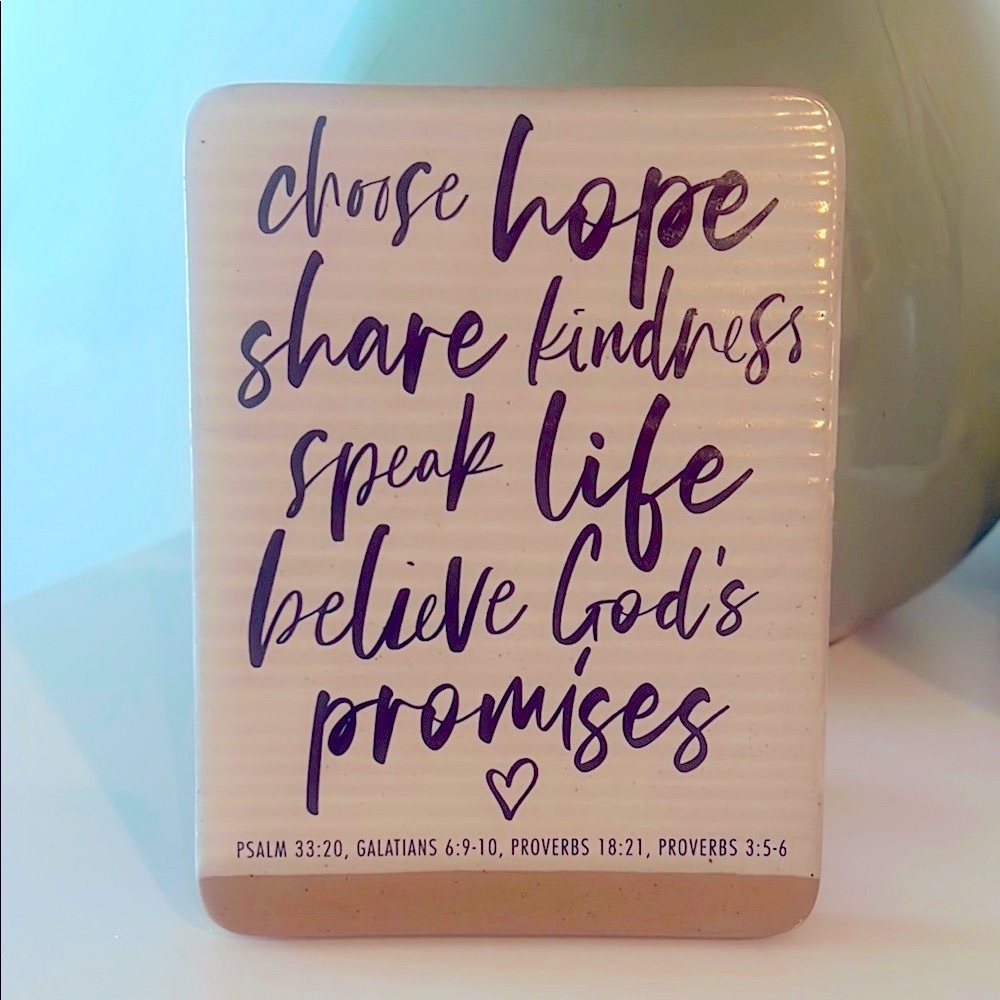 choose hope
share kindness
speak life
believe God's
promises
PSALM 33:20, GALATIANS 6:9-10, PROVERBS 18:21, PROVERBS 3:5-6